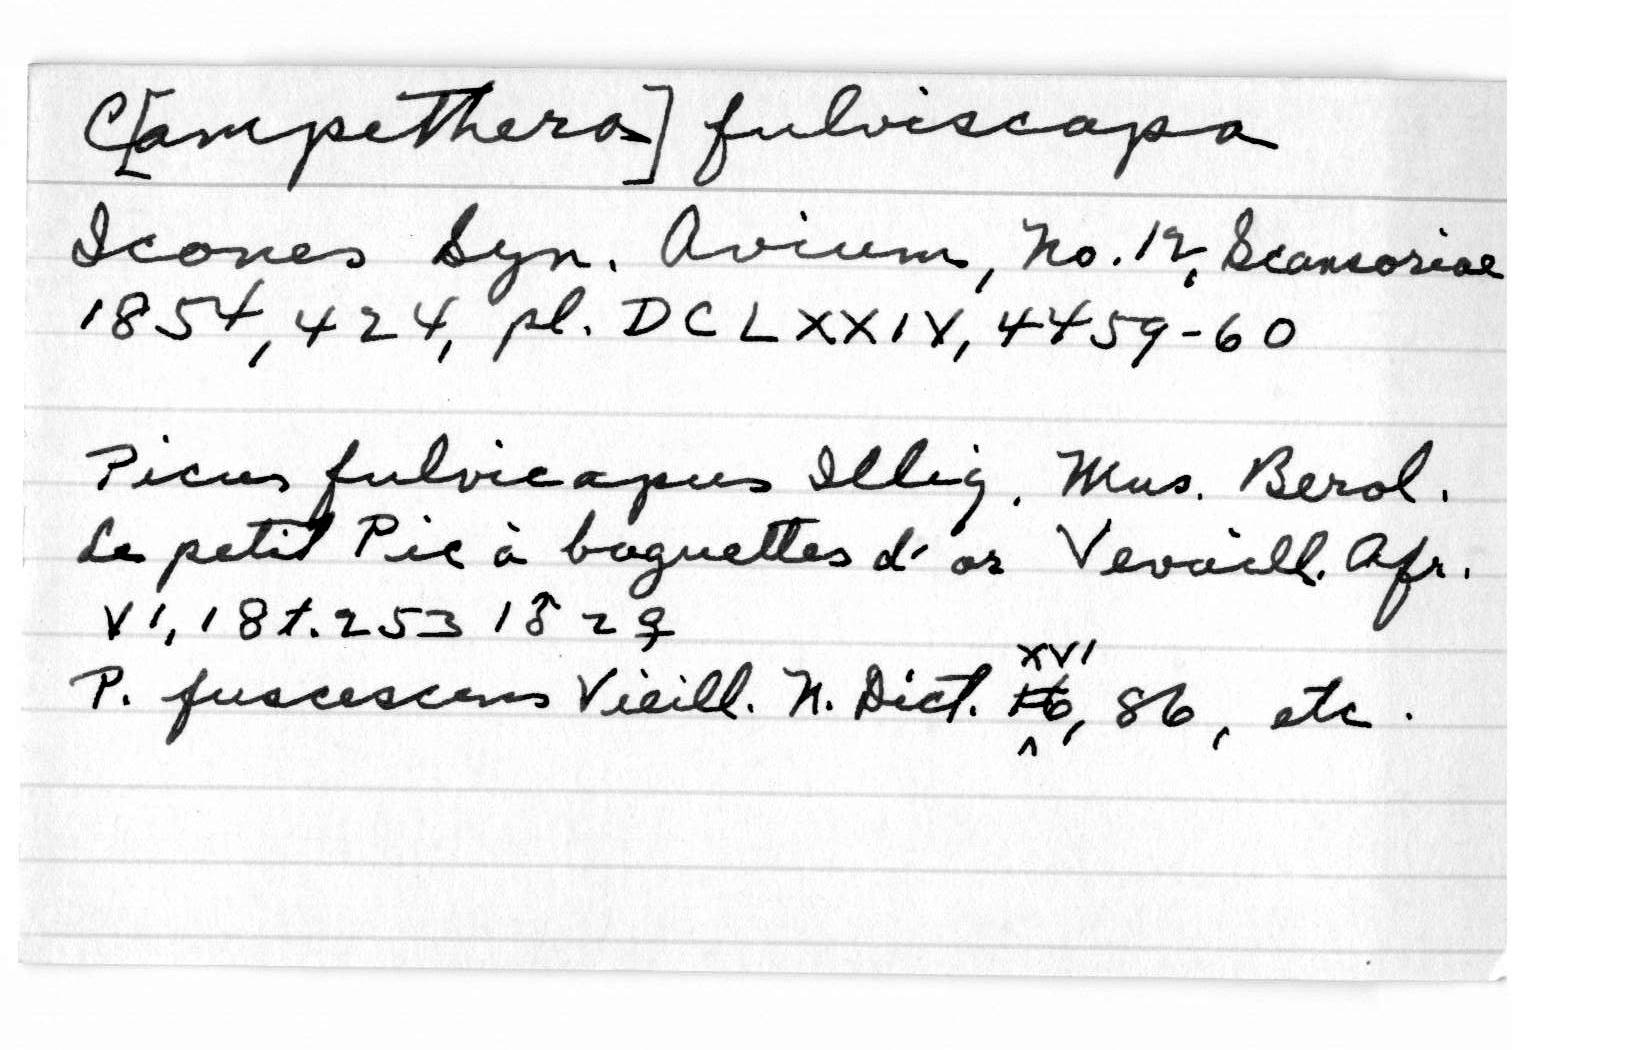 C[ampethera] fulviscapa
Icones Syn. Avium, No. 12, Scansoriae
1854, 424, pl. DCLXXIV, 4459-60
Picus fulvicapus Illig. Mus. Berol.
Le petit Pic à baguettes d'or Vevaill. Afr.
VI, 18 t. 253 1♂ 2♀
P. fuscescens Vieill. N. Dict. XVI, 86, etc.